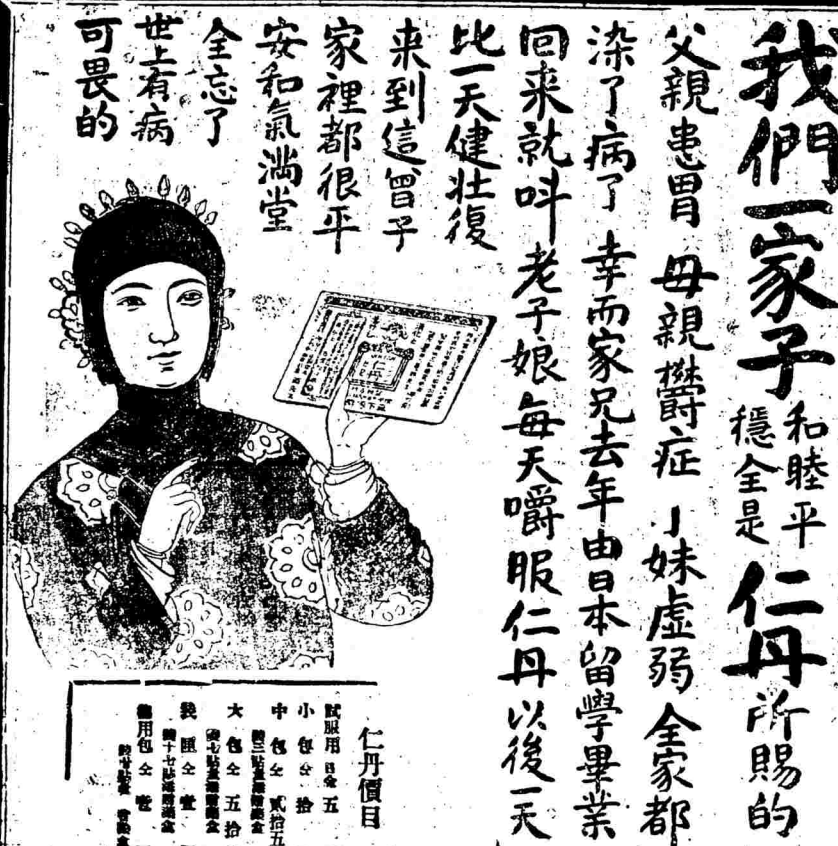 我們一家子
和睦平
穩全是
仁丹所賜的
父親患胃 母親欝症 小妹虛弱 全家都
染了病了 幸而家兄去年由日本留學畢業
回来就呌 老子娘每天嚼服仁丹以後一天
比一天健壮復
来到這曾子
家裡都很平
安和氣滿堂
全忘了
世上有病
可畏的
仁丹價目
試服用 日金 五
小包仝 拾
中包仝 貳拾五
大包仝 五拾